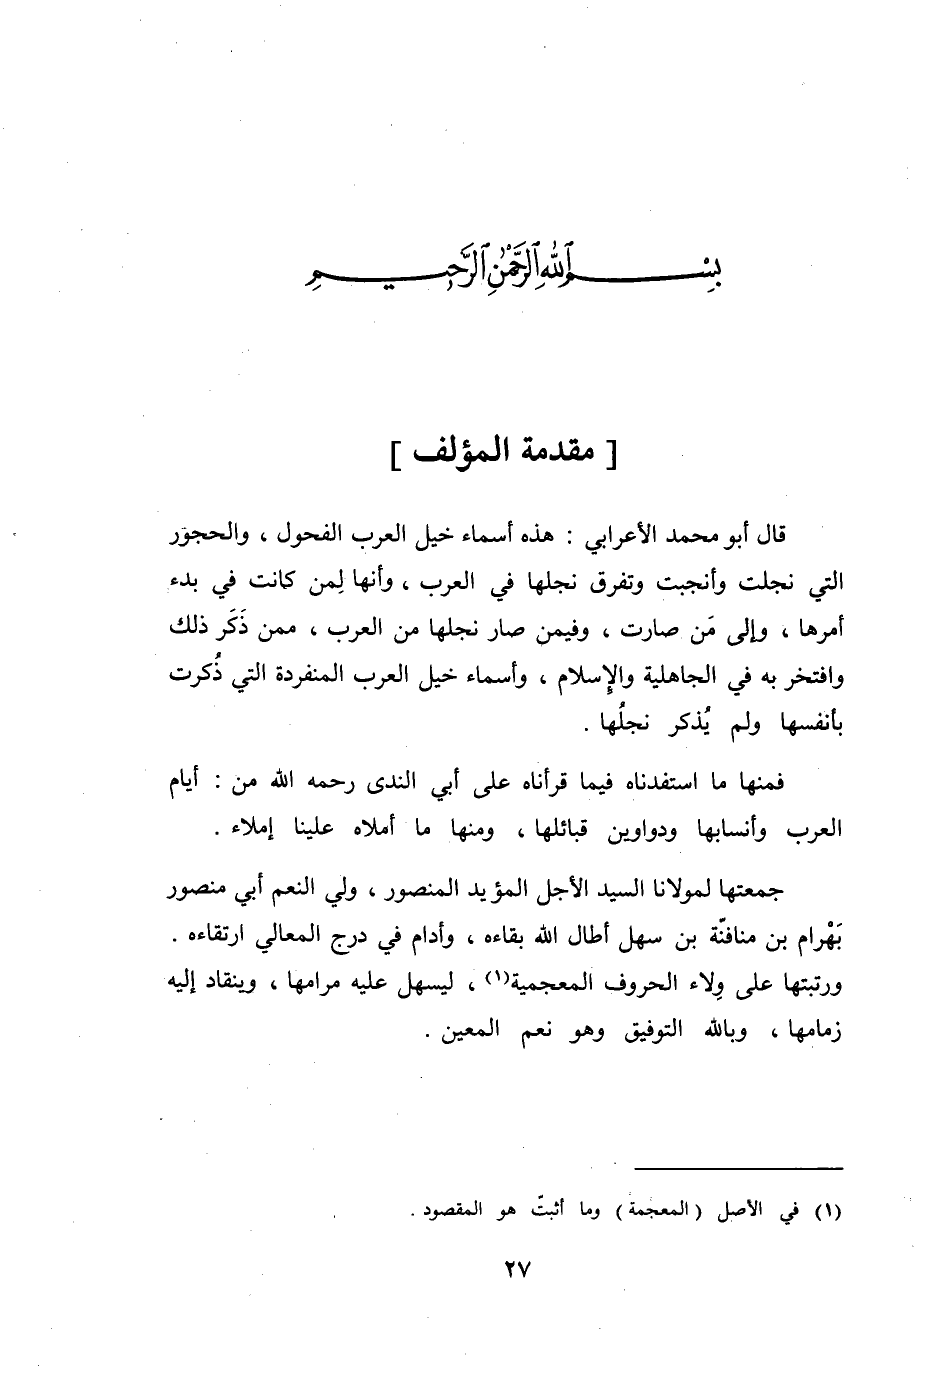 بِسْمِ ٱللَّهِ ٱلرَّحْمَٰنِ ٱلرَّحِيمِ
[ مقدمة المؤلف ]
قال أبو محمد الأعرابي : هذه أسماء خيل العرب الفحول ، والحجور
التي نجلت وأنجبت وتفرق نجلها في العرب ، وأنها لِمن كانت في بدء
أمرها ، وإلى مَن صارت ، وفيمن صار نجلها من العرب ، ممن ذَكَر ذلك
وافتخر به في الجاهلية والإسلام ، وأسماء خيل العرب المنفردة التي ذُكرت
بأنفسها ولم يُذكر نجلُها .
فمنها ما استفدناه فيما قرأناه على أبي الندى رحمه الله من : أيام
العرب وأنسابها ودواوين قبائلها ، ومنها ما أملاه علينا إملاء .
جمعتها لمولانا السيد الأجل المؤيد المنصور ، ولي النعم أبي منصور
بَهْرام بن منافنّة بن سهل أطال الله بقاءه ، وأدام في درج المعالي ارتقاءه .
ورتبتها على وِلاء الحروف المعجمية(١) ، ليسهل عليه مرامها ، وينقاد إليه
زمامها ، وبالله التوفيق وهو نعم المعين .
(١) في الأصل ( المعجمة ) وما أثبتّ هو المقصود .
٢٧